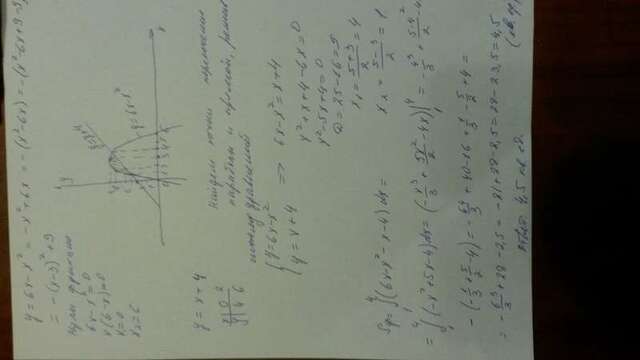 y = 6x - x² = -x² + 6x = -(x² - 6x) = -(x² - 6x + 9 - 9)
= -(x-3)² + 9
Нули функции
6x - x² = 0
x(6-x) = 0
x = 0
x₂ = 6
y = 6x - x²
y = x + 4
x 0 2
y 4 6
Найдем точки пересечения
параболы и прямой, решив
систему уравнений
{ y = 6x - x²
{ y = x + 4
=> 6x - x² = x + 4
x² + x + 4 - 6x = 0
x² - 5x + 4 = 0
D = 25 - 16 = 9
x₁ = (5+3)/2 = 4
x₂ = (5-3)/2 = 1
Sф = ∫₁⁴ (6x - x² - x - 4) dx =
= ∫₁⁴ (-x² + 5x - 4) dx = (-x³/3 + 5x²/2 - 4x)|₁⁴ = -4³/3 + 5·4²/2 - 4
- (-1/3 + 5/2 - 4) = -64/3 + 40 - 16 + 1/3 - 5/2 + 4 =
= -63/3 + 28 - 2,5 = -21 + 28 - 2,5 = 28 - 23,5 = 4,5
(кв. ед.)
Ответ: 4,5 кв. ед.